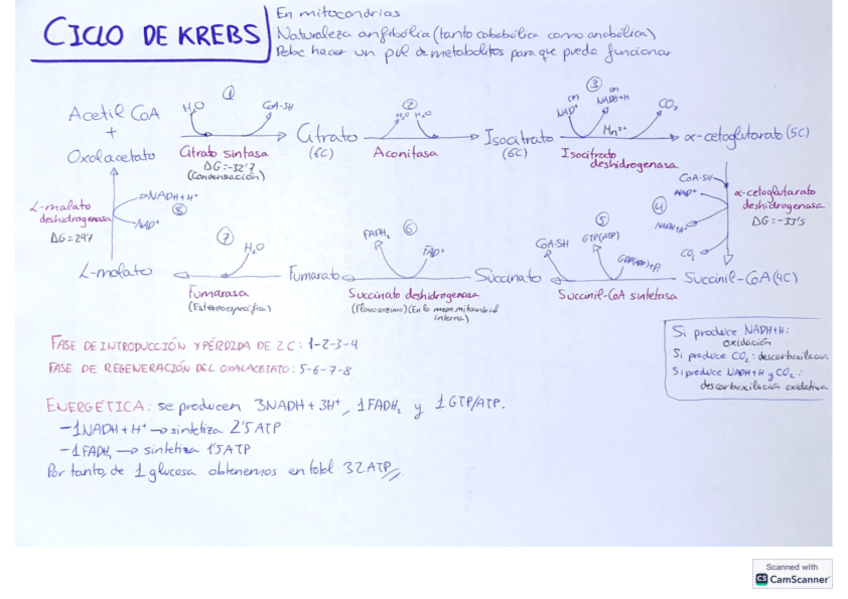 CICLO DE KREBS
En mitocondrias
Naturaleza anfibólia (tanto catabólica como anabólica)
Debe hacer un pul de metabolitos para que pueda funcionar.
Acetil CoA
+
Oxalacetato
①
H₂O
CoA-SH
Citrato sintasa
ΔG=-32'7
(Condensación)
Citrato
(6C)
②
H₂O H₂O
Aconitasa
Isocitrato
(6C)
③
NAD⁺
NADH+H
CO₂
Mn²⁺
Isocitrato
deshidrogenasa
α-cetoglutarato (5C)
CoA-SH
NAD⁺
④
NADH+H⁺
CO₂
α-cetoglutarato
deshidrogenasa
ΔG=-33'5
Succinil-CoA (4C)
⑤
CoA-SH
GTP(ATP)
GDP(ADP)+Pi
Succinil-CoA sintetasa
Succinato
⑥
FADH₂
FAD⁺
Succinato deshidrogenasa
(Flavoenzima) (En la mem. mitocondrial
interna)
Fumarato
⑦
H₂O
Fumarasa
(Estereoespecífica)
L-malato
L-malato
deshidrogenasa
ΔG=29'7
NADH+H⁺
⑧
NAD⁺
FASE DE INTRODUCCIÓN Y PÉRDIDA DE 2C: 1-2-3-4
FASE DE REGENERACIÓN DEL OXALACETATO: 5-6-7-8
Si produce NADH+H:
oxidación
Si produce CO₂: descarboxilación
Si produce NADH+H y CO₂:
descarboxilación oxidativa
ENERGÉTICA: se producen 3NADH+3H⁺, 1FADH₂ y 1GTP/ATP.
-1NADH+H⁺ → sintetiza 2'5 ATP
-1FADH₂ → sintetiza 1'5 ATP
Por tanto, de 1 glucosa obtenemos en total 32 ATP
Scanned with
CS CamScanner